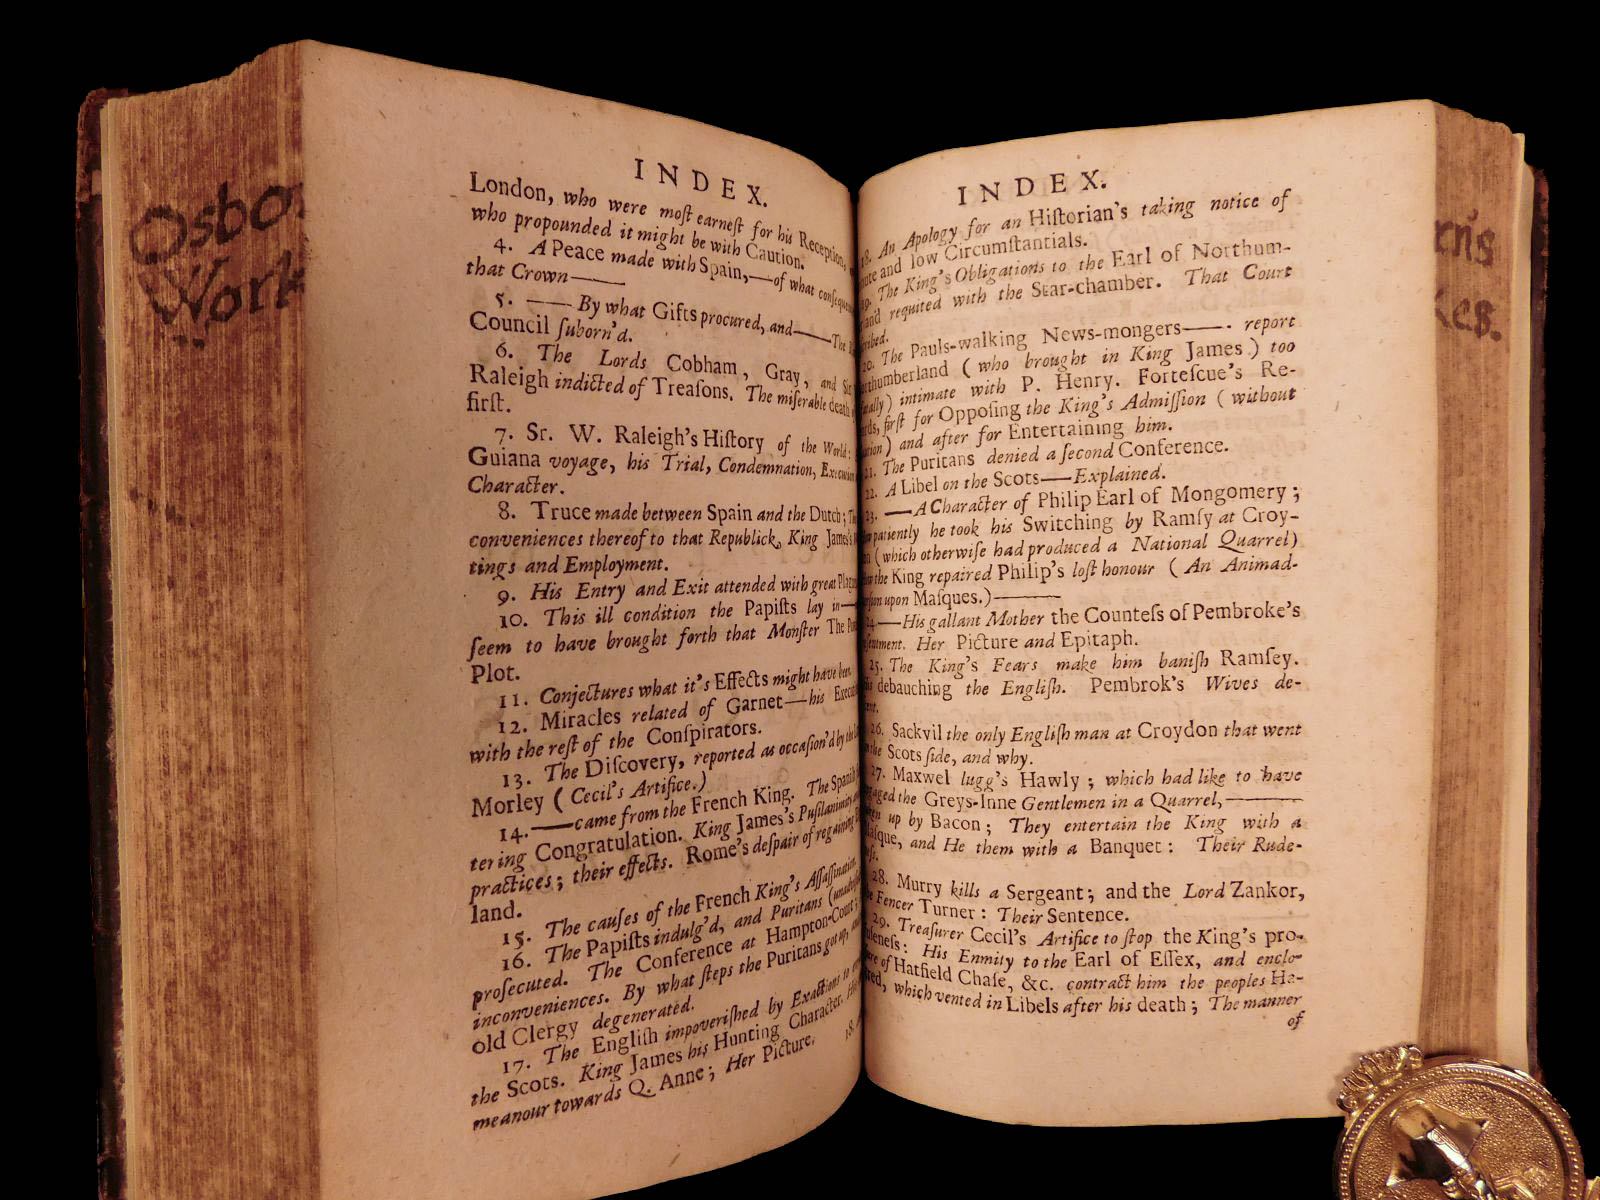 Osbo
Work
INDEX.
London, who were moſt earneſt for his Reception,
who propounded it might be with Caution.
4. A Peace made with Spain,—of what
that Crown——
5. —— By what Gifts procured, and——The
Council ſuborn'd.
6. The Lords Cobham, Gray, and
Raleigh indicted of Treaſons. The miſerable death
firſt.
7. Sr. W. Raleigh's Hiſtory of the World:
Guiana voyage, his Trial, Condemnation,
Character.
8. Truce made between Spain and the Dutch;
conveniences thereof to that Republick, King James's
tings and Employment.
9. His Entry and Exit attended with great
10. This ill condition the Papiſts lay in—
ſeem to have brought forth that Monſter The
Plot.
11. Conjectures what it's Effects might have been.
12. Miracles related of Garnet—his
with the reſt of the Conſpirators.
13. The Diſcovery, reported as occaſion'd by the
Morley ( Cecil's Artifice.)
14.——came from the French King. The Spaniſh
tering Congratulation. King James's Puſilanimity
practices; their effects. Rome's deſpair of regaining
land.
15. The cauſes of the French King's Aſſaſſination.
16. The Papiſts indulg'd, and Puritans
proſecuted. The Conference at Hampton-Court;
inconveniences. By what ſteps the Puritans got up,
old Clergy degenerated.
17. The Engliſh impoveriſhed by Exactions
the Scots. King James his Hunting Character.
meanour towards Q. Anne; Her Picture.
18.
INDEX.
An Apology for an Hiſtorian's taking notice of
and low Circumſtantials.
The King's Obligations to the Earl of Northum-
and requited with the Star-chamber. That Court
The Pauls-walking News-mongers——. report
( who brought in King James ) too
intimate with P. Henry. Forteſcue's Re-
firſt for Oppoſing the King's Admiſſion ( without
) and after for Entertaining him.
The Puritans denied a ſecond Conference.
22. A Libel on the Scots——Explained.
23. ——A Character of Philip Earl of Mongomery;
he took his Switching by Ramſy at Croy-
(which otherwiſe had produced a National Quarrel)
the King repaired Philip's loſt honour ( An Animad-
upon Maſques.)————
—His gallant Mother the Counteſs of Pembroke's
Her Picture and Epitaph.
25. The King's Fears make him baniſh Ramſey.
debauching the Engliſh. Pembrok's Wives de-
26. Sackvil the only Engliſh man at Croydon that went
the Scots ſide, and why.
27. Maxwel lugg's Hawly; which had like to have
the Greys-Inne Gentlemen in a Quarrel,————
up by Bacon; They entertain the King with a
and He them with a Banquet: Their Rude-
28. Murry kills a Sergeant; and the Lord Zankor,
Fencer Turner: Their Sentence.
29. Treaſurer Cecil's Artifice to ſtop the King's pro-
His Enmity to the Earl of Eſſex, and enclo-
of Hatfield Chaſe, &c. contract him the peoples Ha-
which vented in Libels after his death; The manner
of